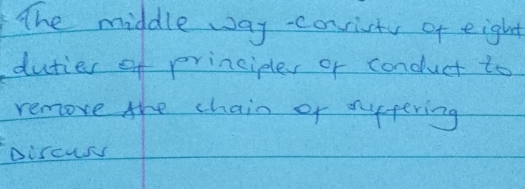 The middle way -consists of eight
duties of principles of conduct to
remove the chain of suffering
Discuss